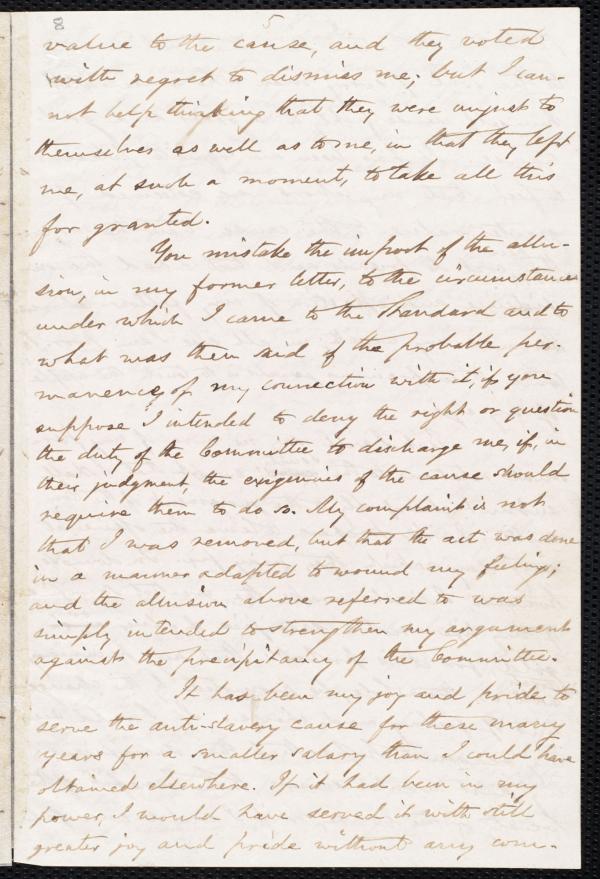 8 5
value to the cause, and they voted
with regret to dismiss me; but I can-
not help thinking that they were unjust to
themselves as well as to me, in that they left
me, at such a moment, to take all this
for granted.
You mistake the import of the allu-
sion, in my former letter, to the circumstances
under which I came to the Standard and to
what was then said of the probable per-
manency of my connection with it, if you
suppose I intended to deny the right or question
the duty of the Committee to discharge me, if, in
their judgment, the exigencies of the cause should
require them to do so. My complaint is not
that I was removed, but that the act was done
in a manner adapted to wound my feelings;
and the allusion above referred to was
simply intended to strengthen my argument
against the precipitancy of the Committee.
It has been my joy and pride to
serve the anti-slavery cause for these many
years for a smaller salary than I could have
obtained elsewhere. If it had been in my
power, I would have served it with still
greater joy and pride without any com-